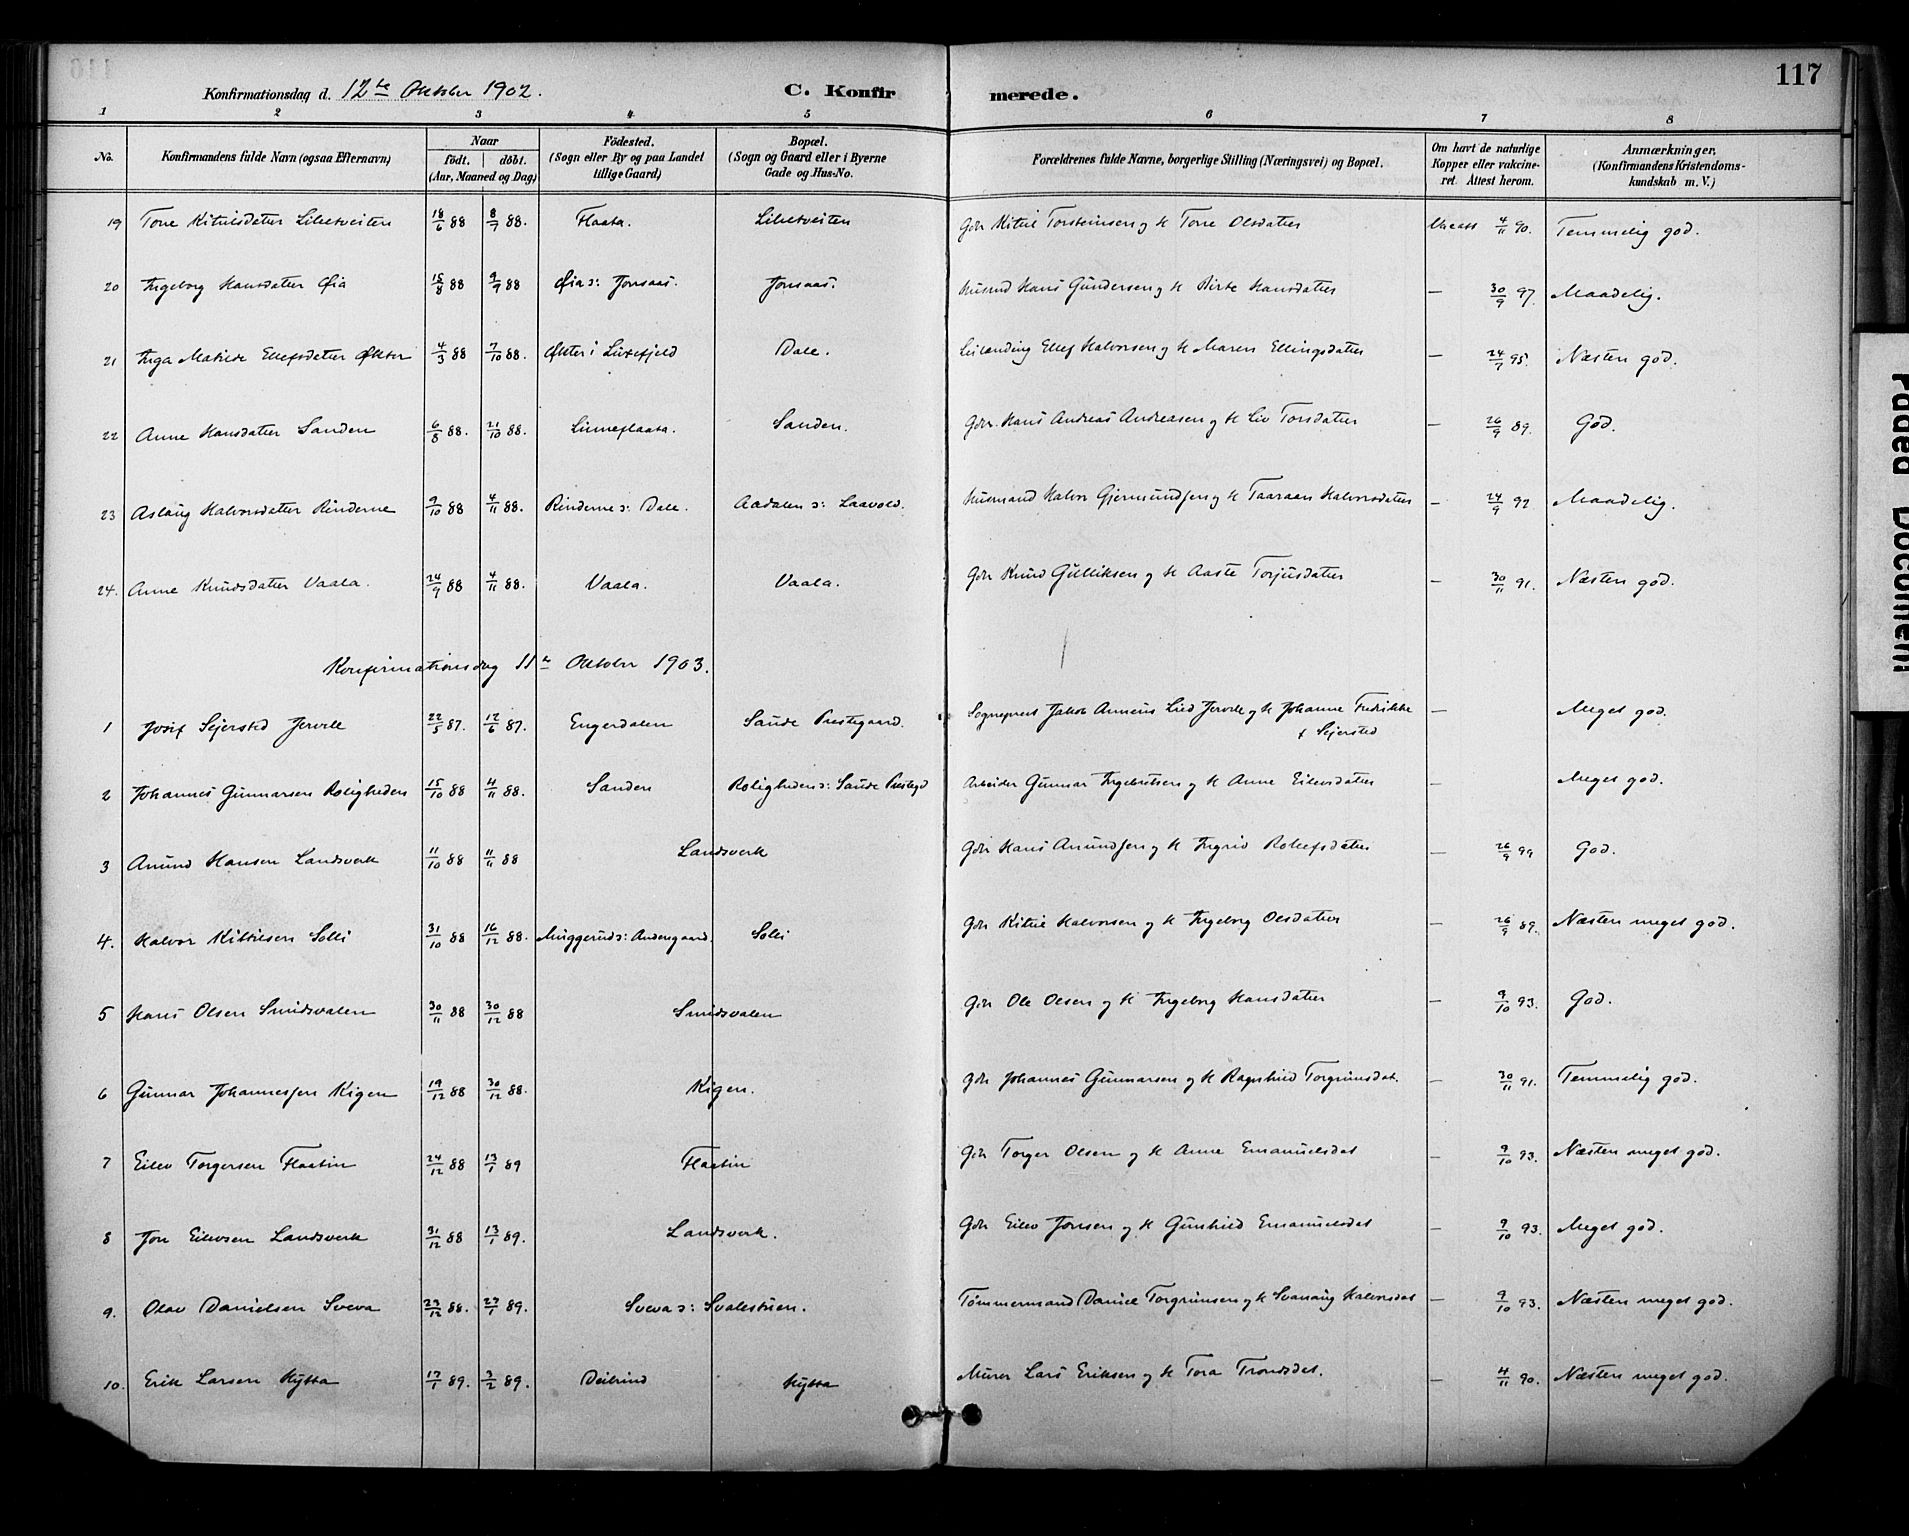 117
Konfirmationsdag d. 12te Oktober 1902.
C. Konfirmerede.
1 2 3 4 5 6 7 8
No. Konfirmandens fulde Navn (ogsaa Efternavn) Naar födt. döbt. (Aar, Maaned og Dag) Födested. (Sogn eller By og paa Landet tillige Gaard) Bopæl. (Sogn og Gaard eller i Byerne Gade og Hus-No. Forældrenes fulde Navne, borgerlige Stilling (Næringsvei) og Bopæl. Om havt de naturlige Kopper eller vakcineret. Attest herom. Anmærkninger, (Konfirmandens Kristendomskundskab m. V.)
19 Tone Kitilsdatter Libetveiten 18/6 88 8/7 88. Flaata. Libetveiten Gdr Kittil Torsteinsen og H Tone Olsdatter 4/11 90. Temmelig god.
20 Ingeborg Hansdatter Øia 15/8 88 9/9 88 Øia s: Jonsaas. Jonsaas. Husmd Hans Gundersen og H Birte Hansdatter — 30/9 97 Maadelig.
21 Inga Matilde Ellefsdatter Økter 4/3 88 7/10 88. Økter i Lifjeld Dale. Leilending Ellef Halvorsen og H Maren Ellingsdatter — 24/7 95. Næsten god.
22 Anne Hansdatter Sanden 6/8 88. 21/10 88. Linneflaata. Sanden. Gdr. Hans Andreas Andreasen og H Liv Torsdatter — 26/9 89. God.
23 Aslaug Halvorsdatter Rinderne 9/10 88 4/11 88. Rinderne s: Dale. Aadalen s: Laavold. Husmand Halvor Gjermundsen og H Taaraan Halvorsdatter — 24/9 92 Maadelig.
24. Anne Knudsdatter Vaala. 24/9 88 4/11 88. Vaala. Vaala. Gdr Knud Gulliksen og H Aaste Torjusdatter — 30/11 91. Næsten god.
Konfirmationsdag 11te Oktober 1903.
1 Josif Sejersted Jervell 22/5 87. 12/6 87. Engerdalen Saude Prestegaard. Sogneprest Jakob Anneus Lied Jervell og H Johanne Fredrikke — Meget god.
f Sejersted
2 Johannes Gunnarsen Roligheden 15/10 88 4/11 88. Sanden Roligheden s: Saude Prestegd Arbeider Gunnar Ingebretsen og H Anne Eilevsdatter — Meget god.
3 Amund Hansen Landsverk 11/10 88 11/11 88 Landsverk Gdr Hans Amundsen og H Ingrid Rolefsdatter — 26/9 99 God.
4. Halvor Kittilsen Solli 31/10 88 16/12 88. Muggerud s: Andersgaard. Solli Gdr Kittil Halvorsen og H Ingeborg Olsdatter — 26/9 89. Næsten meget god.
5 Hans Olsen Smidsvalen 30/11 88 30/12 88 Smidsvalen Gdr Ole Olsen og H Ingeborg Hansdatter — 9/10 93. God.
6 Gunnar Johannessen Kigen 19/12 88 30/12 88. Kigen. Gdr Johannes Gunnarsen og H Ragnhild Torgrimsdat. — 30/11 91. Temmelig god.
7 Eilev Torgersen Flaatin 24/12 88 13/1 89 Flaatin Gdr Torger Olsen og H Anne Emanuelsdat — 9/10 93. Næsten meget god.
8 Jon Eilevsen Landsverk 31/12 88 13/1 89. Landsverk. Gdr Eilev Jonsen og H Gunhild Emanuelsdat — 9/10 93. Meget god.
9. Olav Danielsen Sveva 23/12 88. 27/1 89. Sveva s: Svalestuen. Tømmermand Daniel Torgrimsen og H Svanaug Halvorsdat — 9/10 93. Næsten meget god.
10. Erik Larsen Hytta 17/1 89. 3/2 89. Deilrind Hytta Murer Lars Eriksen og H Tora Trondsdat. — 4/11 90. Næsten meget god.
Paged Document